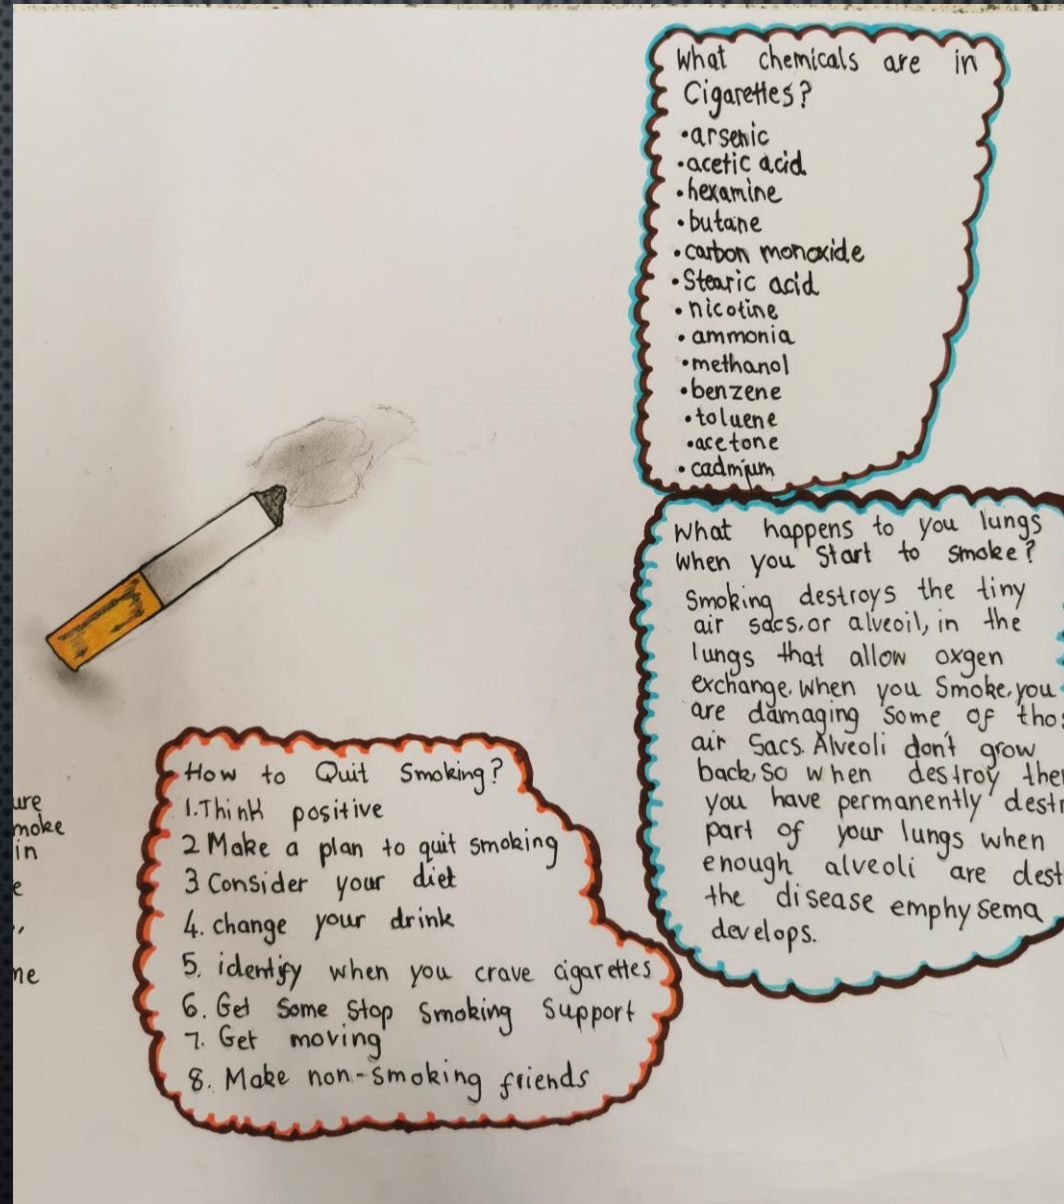 What chemicals are in
Cigarettes?
•arsenic
•acetic acid
•hexamine
•butane
•carbon monoxide
•Stearic acid
•nicotine
•ammonia
•methanol
•benzene
•toluene
•acetone
•cadmium
What happens to you lungs
when you Start to smoke?
Smoking destroys the tiny
air sacs, or alveoil, in the
lungs that allow oxgen
exchange. When you Smoke, you
are damaging Some of
air Sacs. Alveoli don't grow
back, So when destroy
you have permanently
part of your lungs when
enough alveoli are
the disease emphysema
develops.
How to Quit Smoking?
1. Think positive
2 Make a plan to quit smoking
3 Consider your diet
4. change your drink
5. identify when you crave cigarettes
6. Get Some Stop Smoking Support
7. Get moving
8. Make non-smoking friends
in